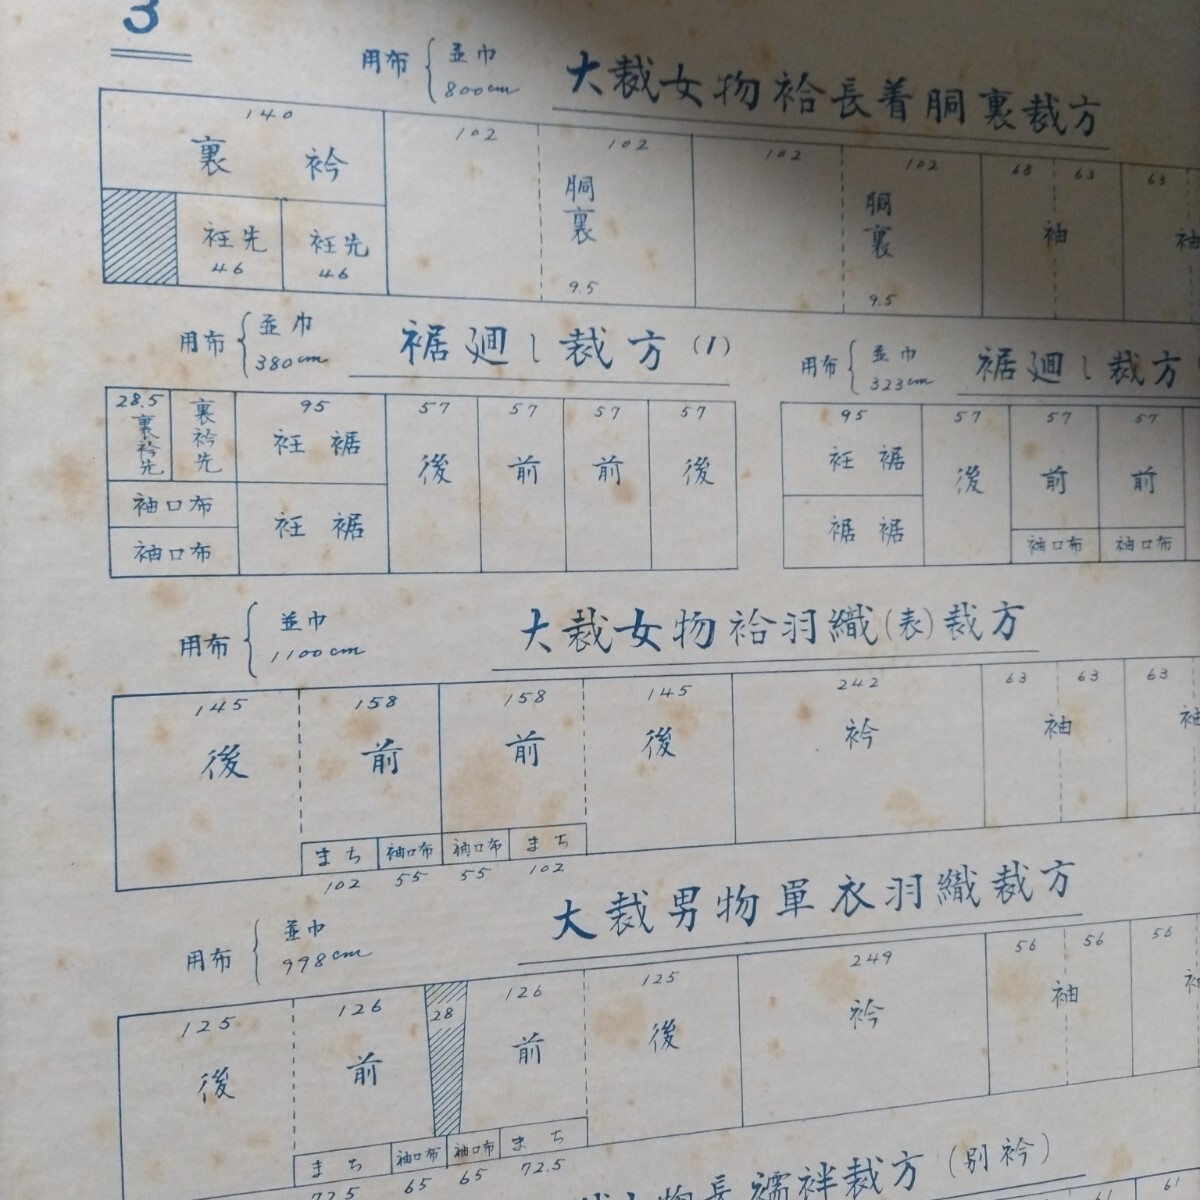 3
用布 並巾 800cm 大裁女物袷長着胴裏裁方
140 102 102 102 102 63 63 63
裏 衿 胴裏 胴裏 袖 袖
衽先 衽先
46 46 9.5 9.5
用布 並巾 380cm 裾廻し裁方 (1)
28.5 95 57 57 57 57
裏衿先 裏衿先 衽 裾 後 前 前 後
袖口布 衽 裾
袖口布
用布 並巾 323cm 裾廻し裁方
95 57 57 57
衽 裾 後 前 前
裾 裾 袖口布 袖口布
用布 並巾 1100cm 大裁女物袷羽織(表)裁方
145 158 158 145 242 63 63 63
後 前 前 後 衿 袖 袖
まち 袖口布 袖口布 まち
102 55 55 102
用布 並巾 998cm 大裁男物單衣羽織裁方
125 126 28 126 125 249 56 56 56
後 前 前 後 衿 袖 袖
まち 袖口布 袖口布 まち
72.5 65 65 72.5
物長襦袢裁方 (別衿)
61